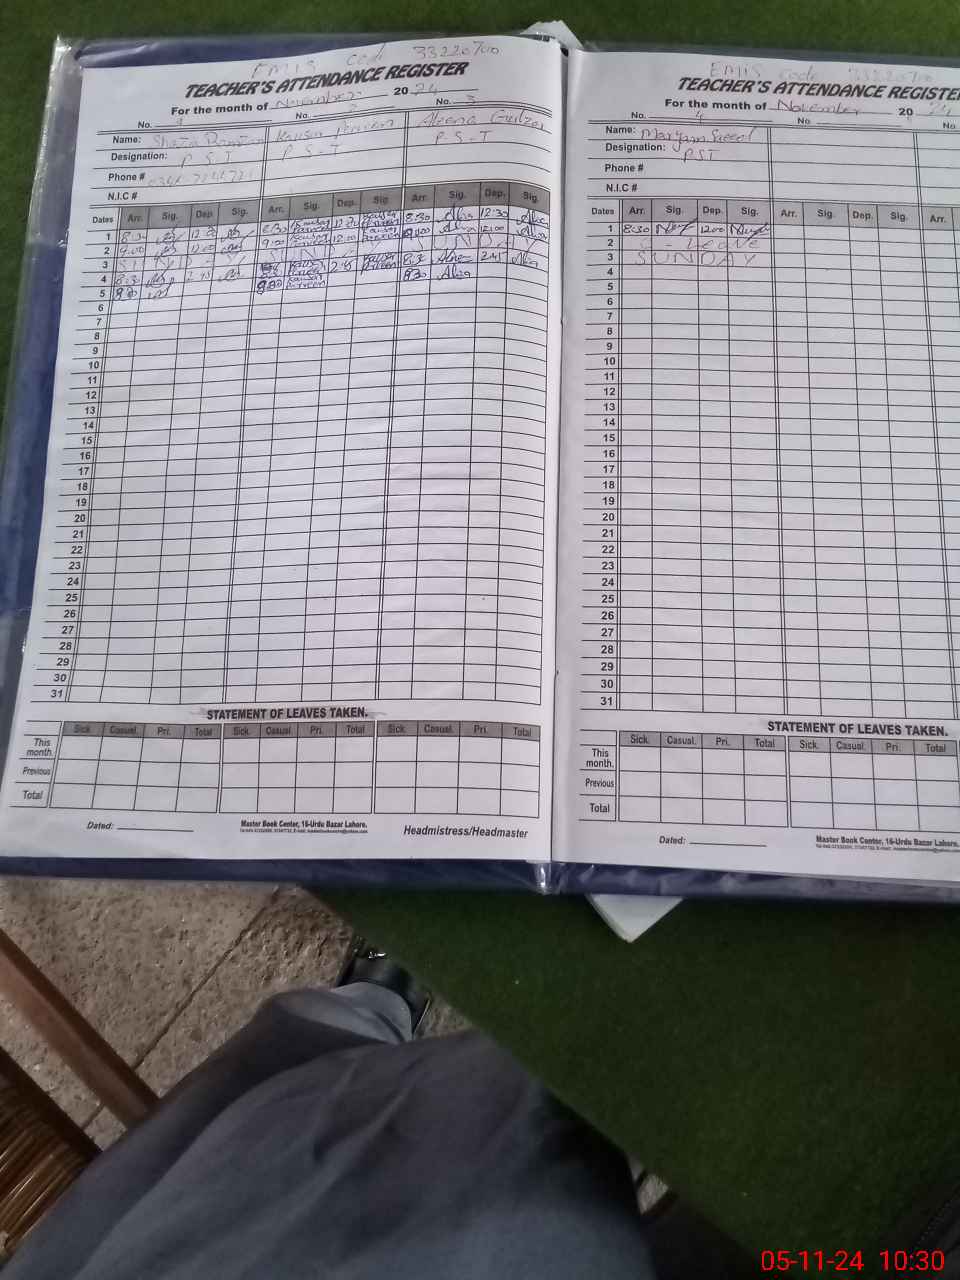 EMIS code 33220700
TEACHER'S ATTENDANCE REGISTER
For the month of November 2024
No. 1 No. 2 No. 3
Name: Shazia Kausar Parveen Aleena Gulzar
Designation: P S T P S T P S T
Phone #
N.I.C #
Dates Arr. Sig. Dep. Sig. Arr. Sig. Dep. Sig. Arr. Sig. Dep. Sig.
1 8:30 12:00 8:30 Kausar Parveen 12:00 Kausar Parveen 8:30 12:30
2 9:00 12:00 9:00 12:00 Kausar Parveen 9:00 12:00
3 SUNDAY SUNDAY
4 8:30 2:45 Kausar Parveen 2:45 Kausar Parveen 8:30 2:45
5 Kausar Parveen
6
7
8
9
10
11
12
13
14
15
16
17
18
19
20
21
22
23
24
25
26
27
28
29
30
31
STATEMENT OF LEAVES TAKEN.
Sick. Casual. Pri. Total Sick. Casual. Pri. Total Sick. Casual. Pri. Total
This month.
Previous
Total
Dated:
Master Book Center, 16-Urdu Bazar Lahore.
Headmistress/Headmaster
EMIS code
TEACHER'S ATTENDANCE REGISTER
For the month of November 2024
No. 4 No. No.
Name: Maryam Saeed
Designation: PST
Phone #
N.I.C #
Dates Arr. Sig. Dep. Sig. Arr. Sig. Dep. Sig. Arr.
1 8:30 12:00
2 C - Leave
3 SUNDAY
4
5
6
7
8
9
10
11
12
13
14
15
16
17
18
19
20
21
22
23
24
25
26
27
28
29
30
31
STATEMENT OF LEAVES TAKEN.
Sick. Casual. Pri. Total Sick. Casual. Pri. Total
This month.
Previous
Total
Dated:
Master Book Center, 16-Urdu Bazar Lahore.
05-11-24 10:30